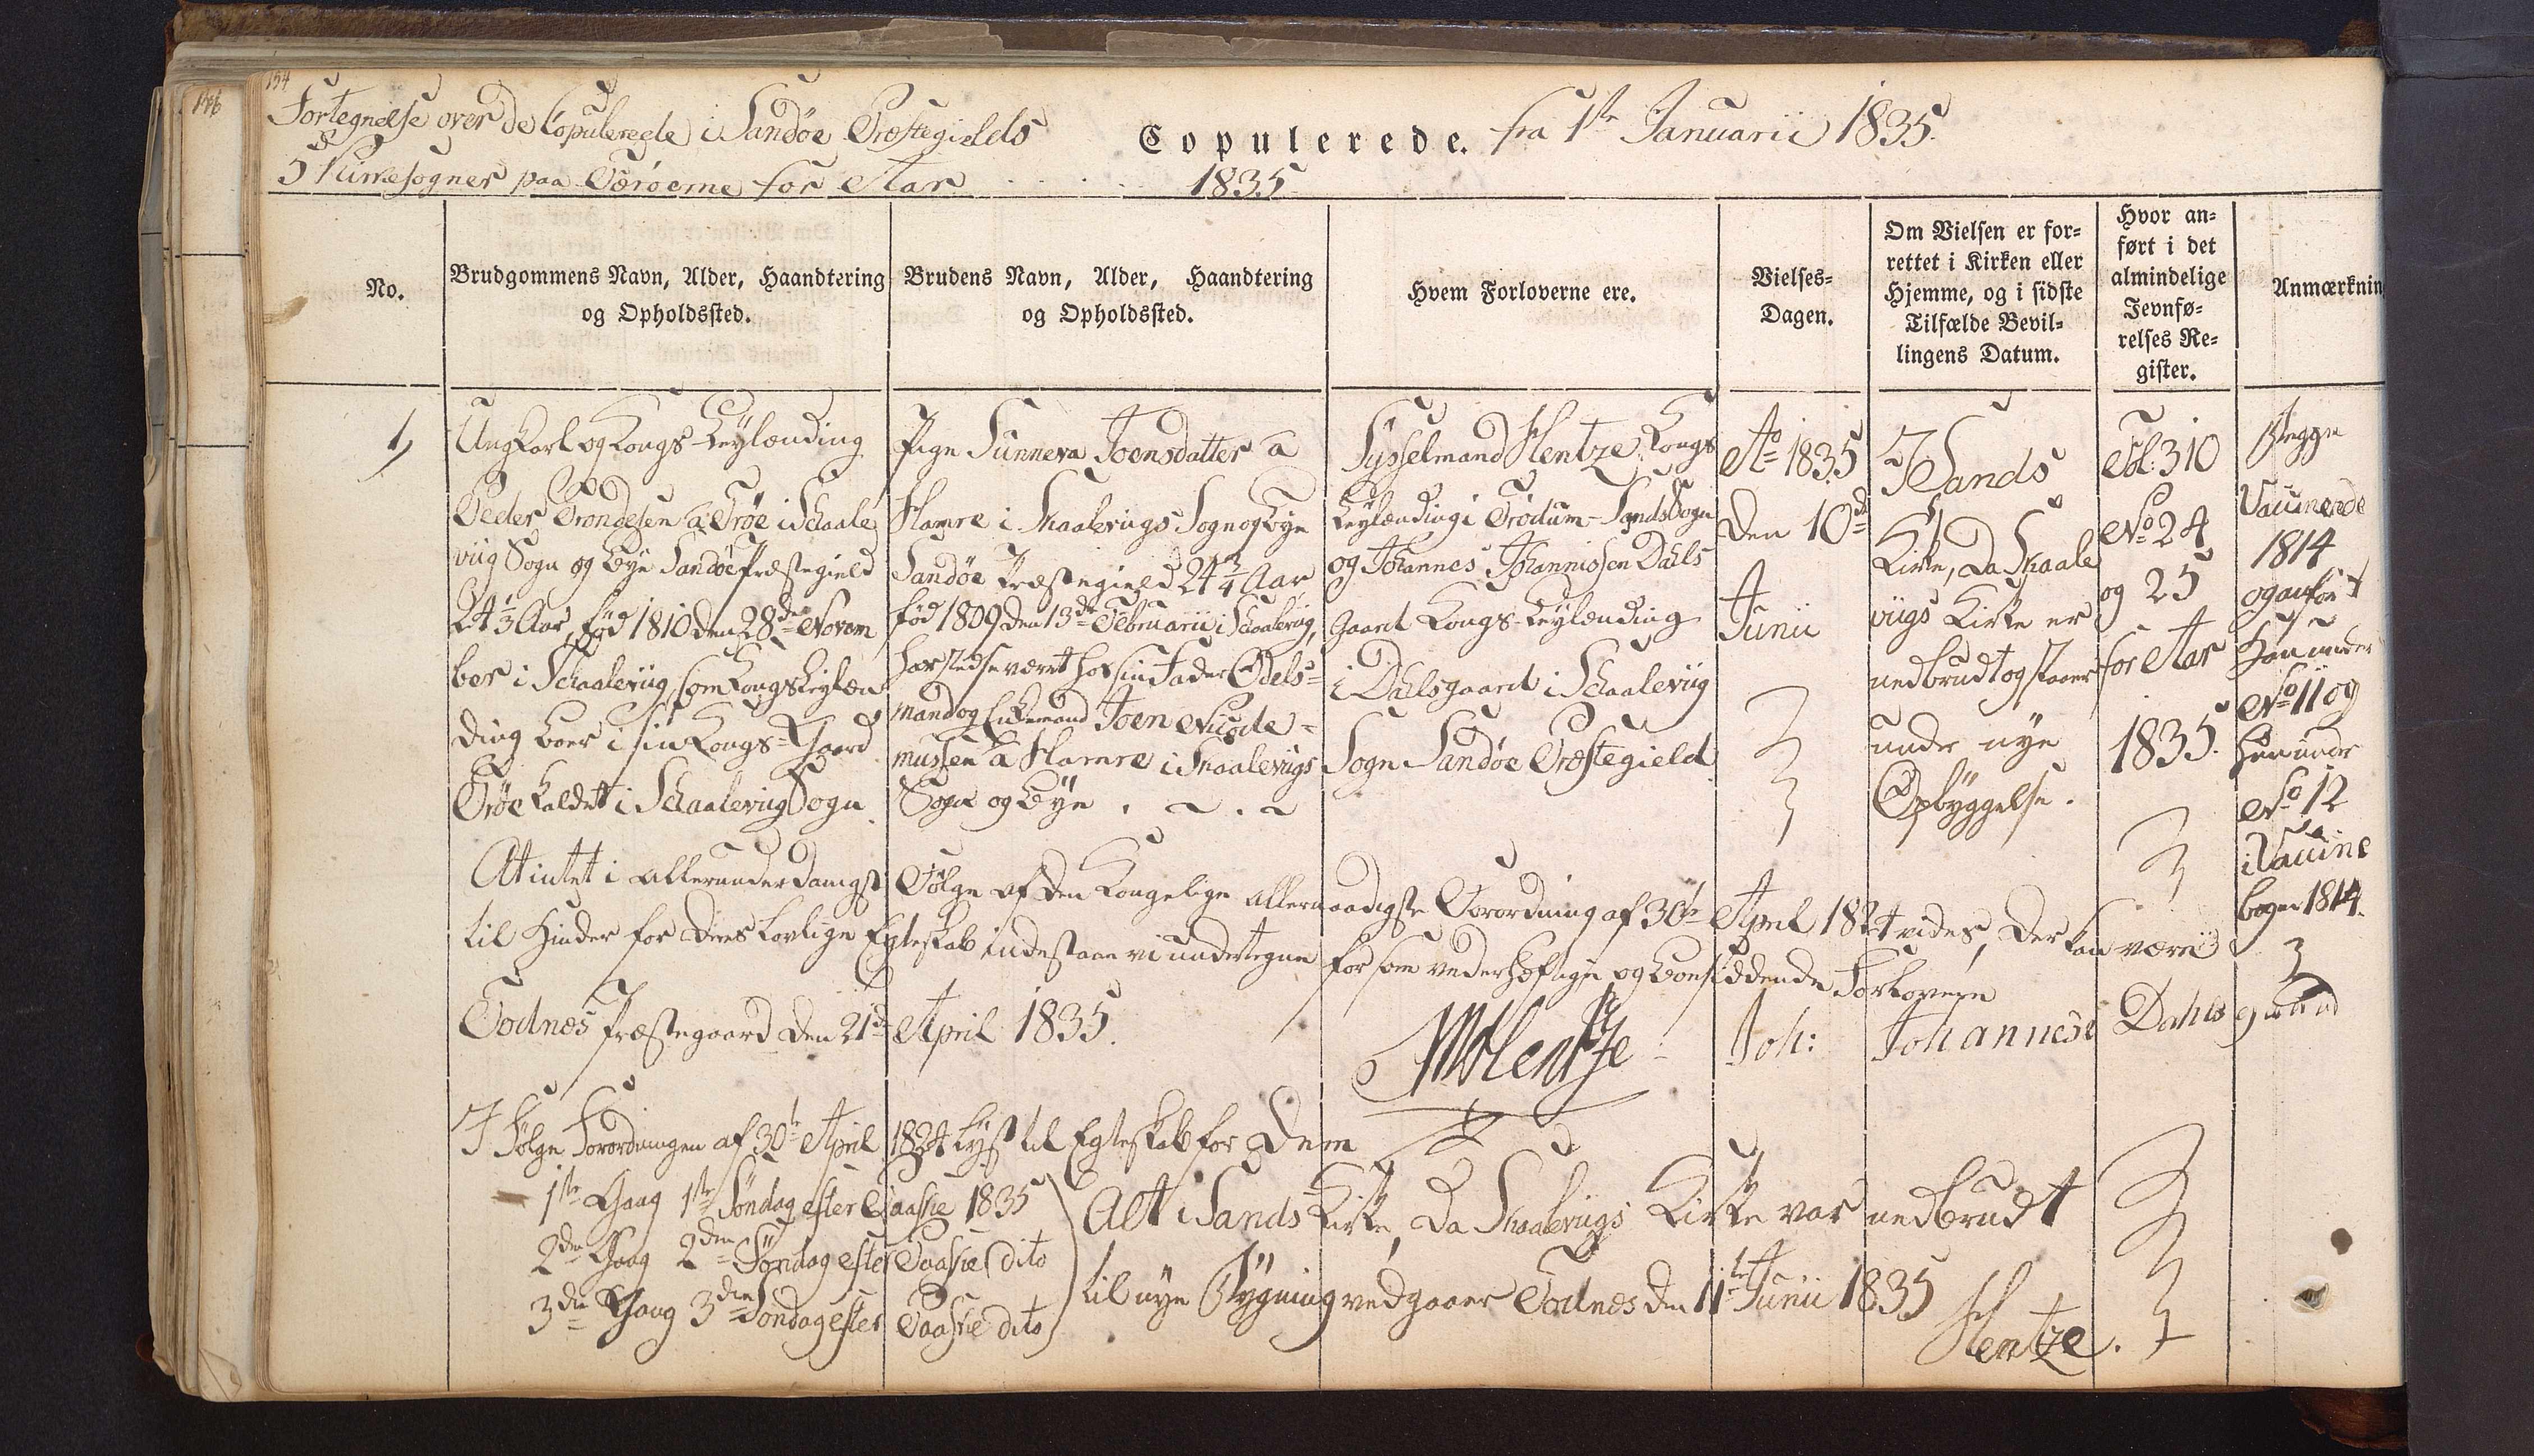 146
154
Fortegnelse over de Copulerede i Sandøe Præstegields
5 Kirkesogner paa Færöerne for Aar . . . . 1835
Copulerede. fra 1ste Januarii 1835.
No.
Brudgommens Navn, Alder, Haandtering
og Opholdssted.
Brudens Navn, Alder, Haandtering
og Opholdssted.
Hvem Forloverne ere.
Vielses-
Dagen.
Om Vielsen er for-
rettet i Kirken eller
Hjemme, og i sidste
Tilfælde Bevil-
lingens Datum.
Hvor an-
ført i det
almindelige
Jevnfø-
relses Re-
gister.
Anmærknin
1)
Ungkarl og Kongs-Leylænding
Peder Trondesen a Trøe i Skaale
viig Sogn og Bye Sandøe Præstegield
24 1/3 Aar, fød 1810 den 28de Novem
ber i Schaaleviig, som Kongs Leylæn
ding boer i sin Kongs-Gaard
Trøe kaldet i Schaaleviig Sogn.
Pige Sunneva Joensdatter a
Hamre i Skaaleviigs Sogn og Bye
Sandøe Præstegield 24 3/4 Aar
fød 1809 den 13de Februarii i Schaaleviig,
har stedse været hos sin Fader Odels-
mand og Enkemand Joen Nicode-
mussen a Hamre i Skaaleviigs
Sogn og Bye . ~ . ~
Sysselmand Hentze Kongs
Leylænding i Trødum-Sands Sogn
og Johannes Johannissen Dahls
gaard Kongs-Leylænding
i Dahlsgaard i Schaaleviig
Sogn Sandøe Præstegield
Ao 1835
Den 10de
Junii
I Sands
Kirke, da Skaale
viigs Kirke er
nedbrudt og staaer
under nye
Opbyggelse.
Fol: 310
No 24
og 25
for Aar
1835.
Begge
Vaccinerede
1814
og anført
Han under
No 11 og
Hun under
No 12
i Vaccine
bogen 1814.
At intet i allerunderdanigst Følge af den Kongelige allernaadigste Forordning af 30te April 1824 vides, der kan være
til Hinder for deres lovlige Egteskab indestaae vi undertegnede for som vederhæftige og boesiddende Forlovere
Todnes Præstegaard den 21de April 1835.
MHentze Joh: Johannese Dahls gaard
I Følge Forordningen af 30te April 1824 lyst til Egteskab for Dem
1ste Gang 1ste Söndag efter Paaske 1835
2den Gang 2den Söndag efter Paaske dito
3die Gang 3die Söndag efter Paaske dito
Alt i Sands Kirke, da Skaaleviigs Kirke var nedbrudt
til nye Bygning vedgaaer Todnes den 11te Junii 1835
Hentze.